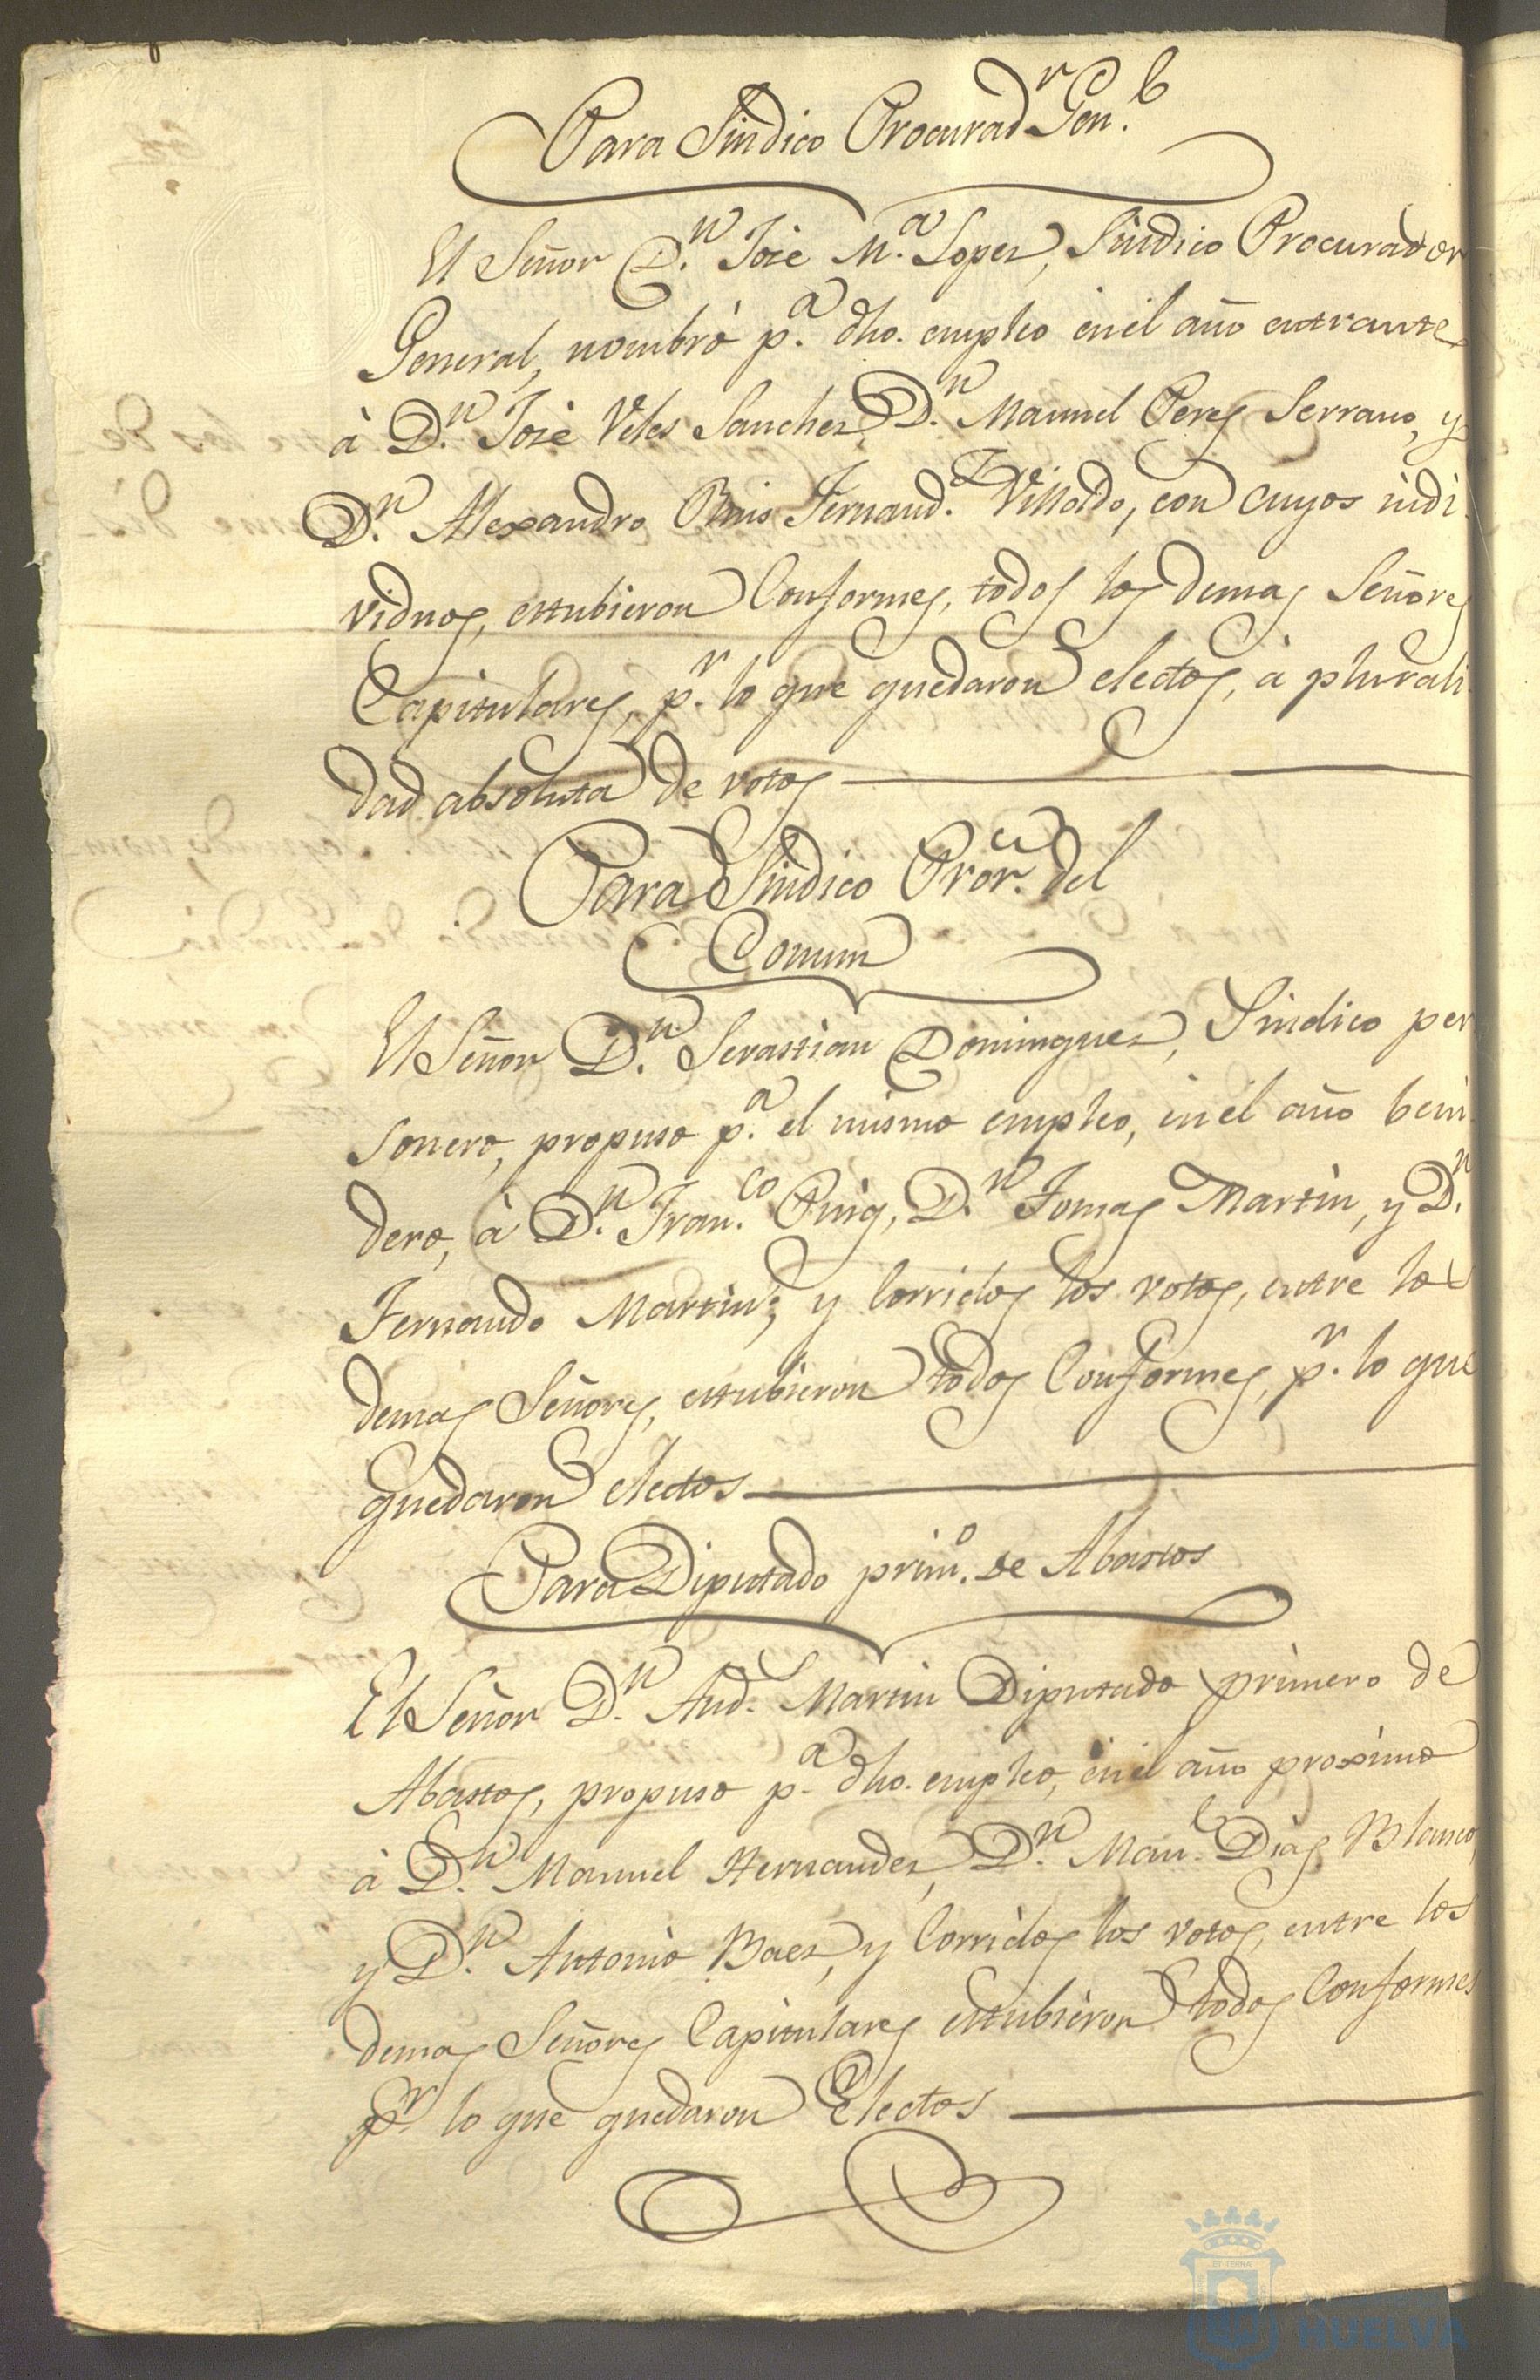 Para Sindico Procurad.r Gen.l
El Señor D.n José M.a Lopez, Sindico Procurador
General, nombró p.a dho. empleo en el año entrante
à D.n José Veles Sanchez, D.n Manuel Perez Serrano, y
D.n Alexandro Ruis Fernand.z Villoldo, con cuyos indi
viduos, estubieron Conformes, todos los demas Señores
Capitulares, p.r lo que quedaron electos, à plurali
dad absoluta de votos
Para Sindico Pror. del
Comun
El Señor D.n Sevastian Dominguez, Sindico per
sonero, propuso p.a el mismo empleo, en el año beni
dero, à D.n Fran.co Puig, D.n Tomas Martin, y D.n
Fernando Martin; y Corridos los votos, entre los
demas Señores, estubieron todos Conformes, p.r lo que
quedaron electos
Para Diputado prim.o de Abastos
El Señor D.n And.s Martin Diputado primero de
Abastos, propuso p.a dho. empleo, en el año proximo
à D.n Manuel Hernandez, D.n Man.l Diaz Blanco,
y D.n Antonio Baez, y Corridos los votos, entre los
demas Señores Capitulares estubieron todos Conformes
p.r lo que quedaron Electos
HUELVA